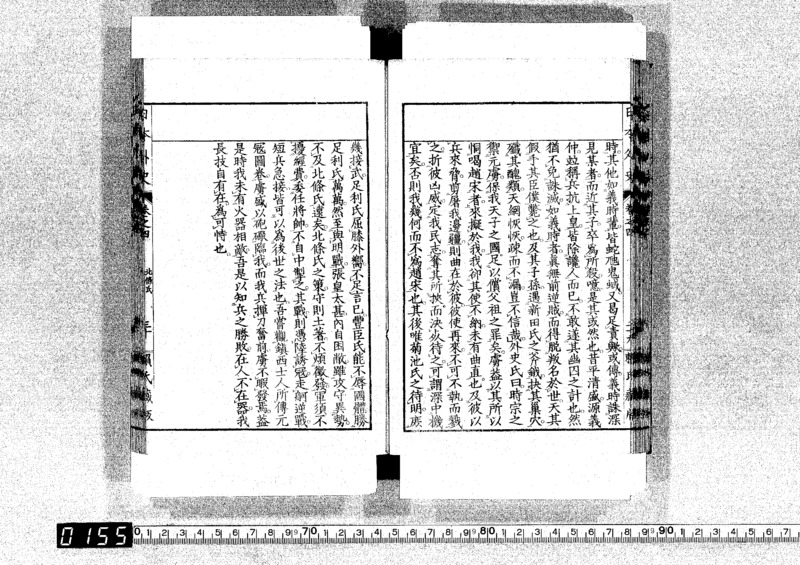 時其他如義時輩皆蛇虺鬼蜮又曷足責無或傳義時誅深
見某者而近其子卒爲所殺噫是其或然也昔平清盛源義
仲竝稱兵抗上皇皆除讒人而已不敢遂其幽囚之計也然
猶不免誅滅如義時者眞無前逆賊而得脫戮名於世天其
假手其臣僕斃之也及其子孫遇新田氏之斧鉞扶其巢穴
殲其醜類天網恢恢疎而不漏豈不信哉外史氏曰時宗之
禦元虜保我天子之國足以償父祖之罪矣虜蓋以其所以
恫喝趙宋者來擬於我我卻其使不納未有曲直也及彼以
兵來脅剪屠我邊疆則曲在於彼彼使再來不可不執而戮
之折彼凶威定我民志奪其所挾而決以待之可謂深中機
宜矣否則我幾何而不爲趙宋也其後唯菊池氏之待明庶
幾接武足利氏屈膝外嚮不足言已豐臣氏能不辱國體勝
足利氏萬萬然至與明戰張皇太甚內自困敝雖攻守異勢
不及北條氏遠矣北條氏之策守則土著不煩徵發軍須不
擾經費委任將帥不自中掣之其戰則憑陸誘寇走舸逆戰
短兵急接皆可以爲後世之法也吾嘗觀鎭西士人所傳元
寇圖卷虜盛以砲礟臨我而我兵揮刀奮前虜不暇發焉蓋
是時我未有火器相敵吾是以知兵之勝敗在人不在器我
長技自有在焉可恃也
日本外史 卷之四
北條氏
賴氏藏版
0155